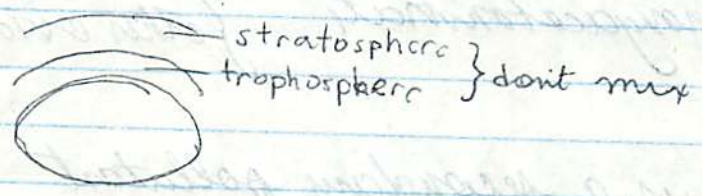 stratosphere
trophosphere } don't mix